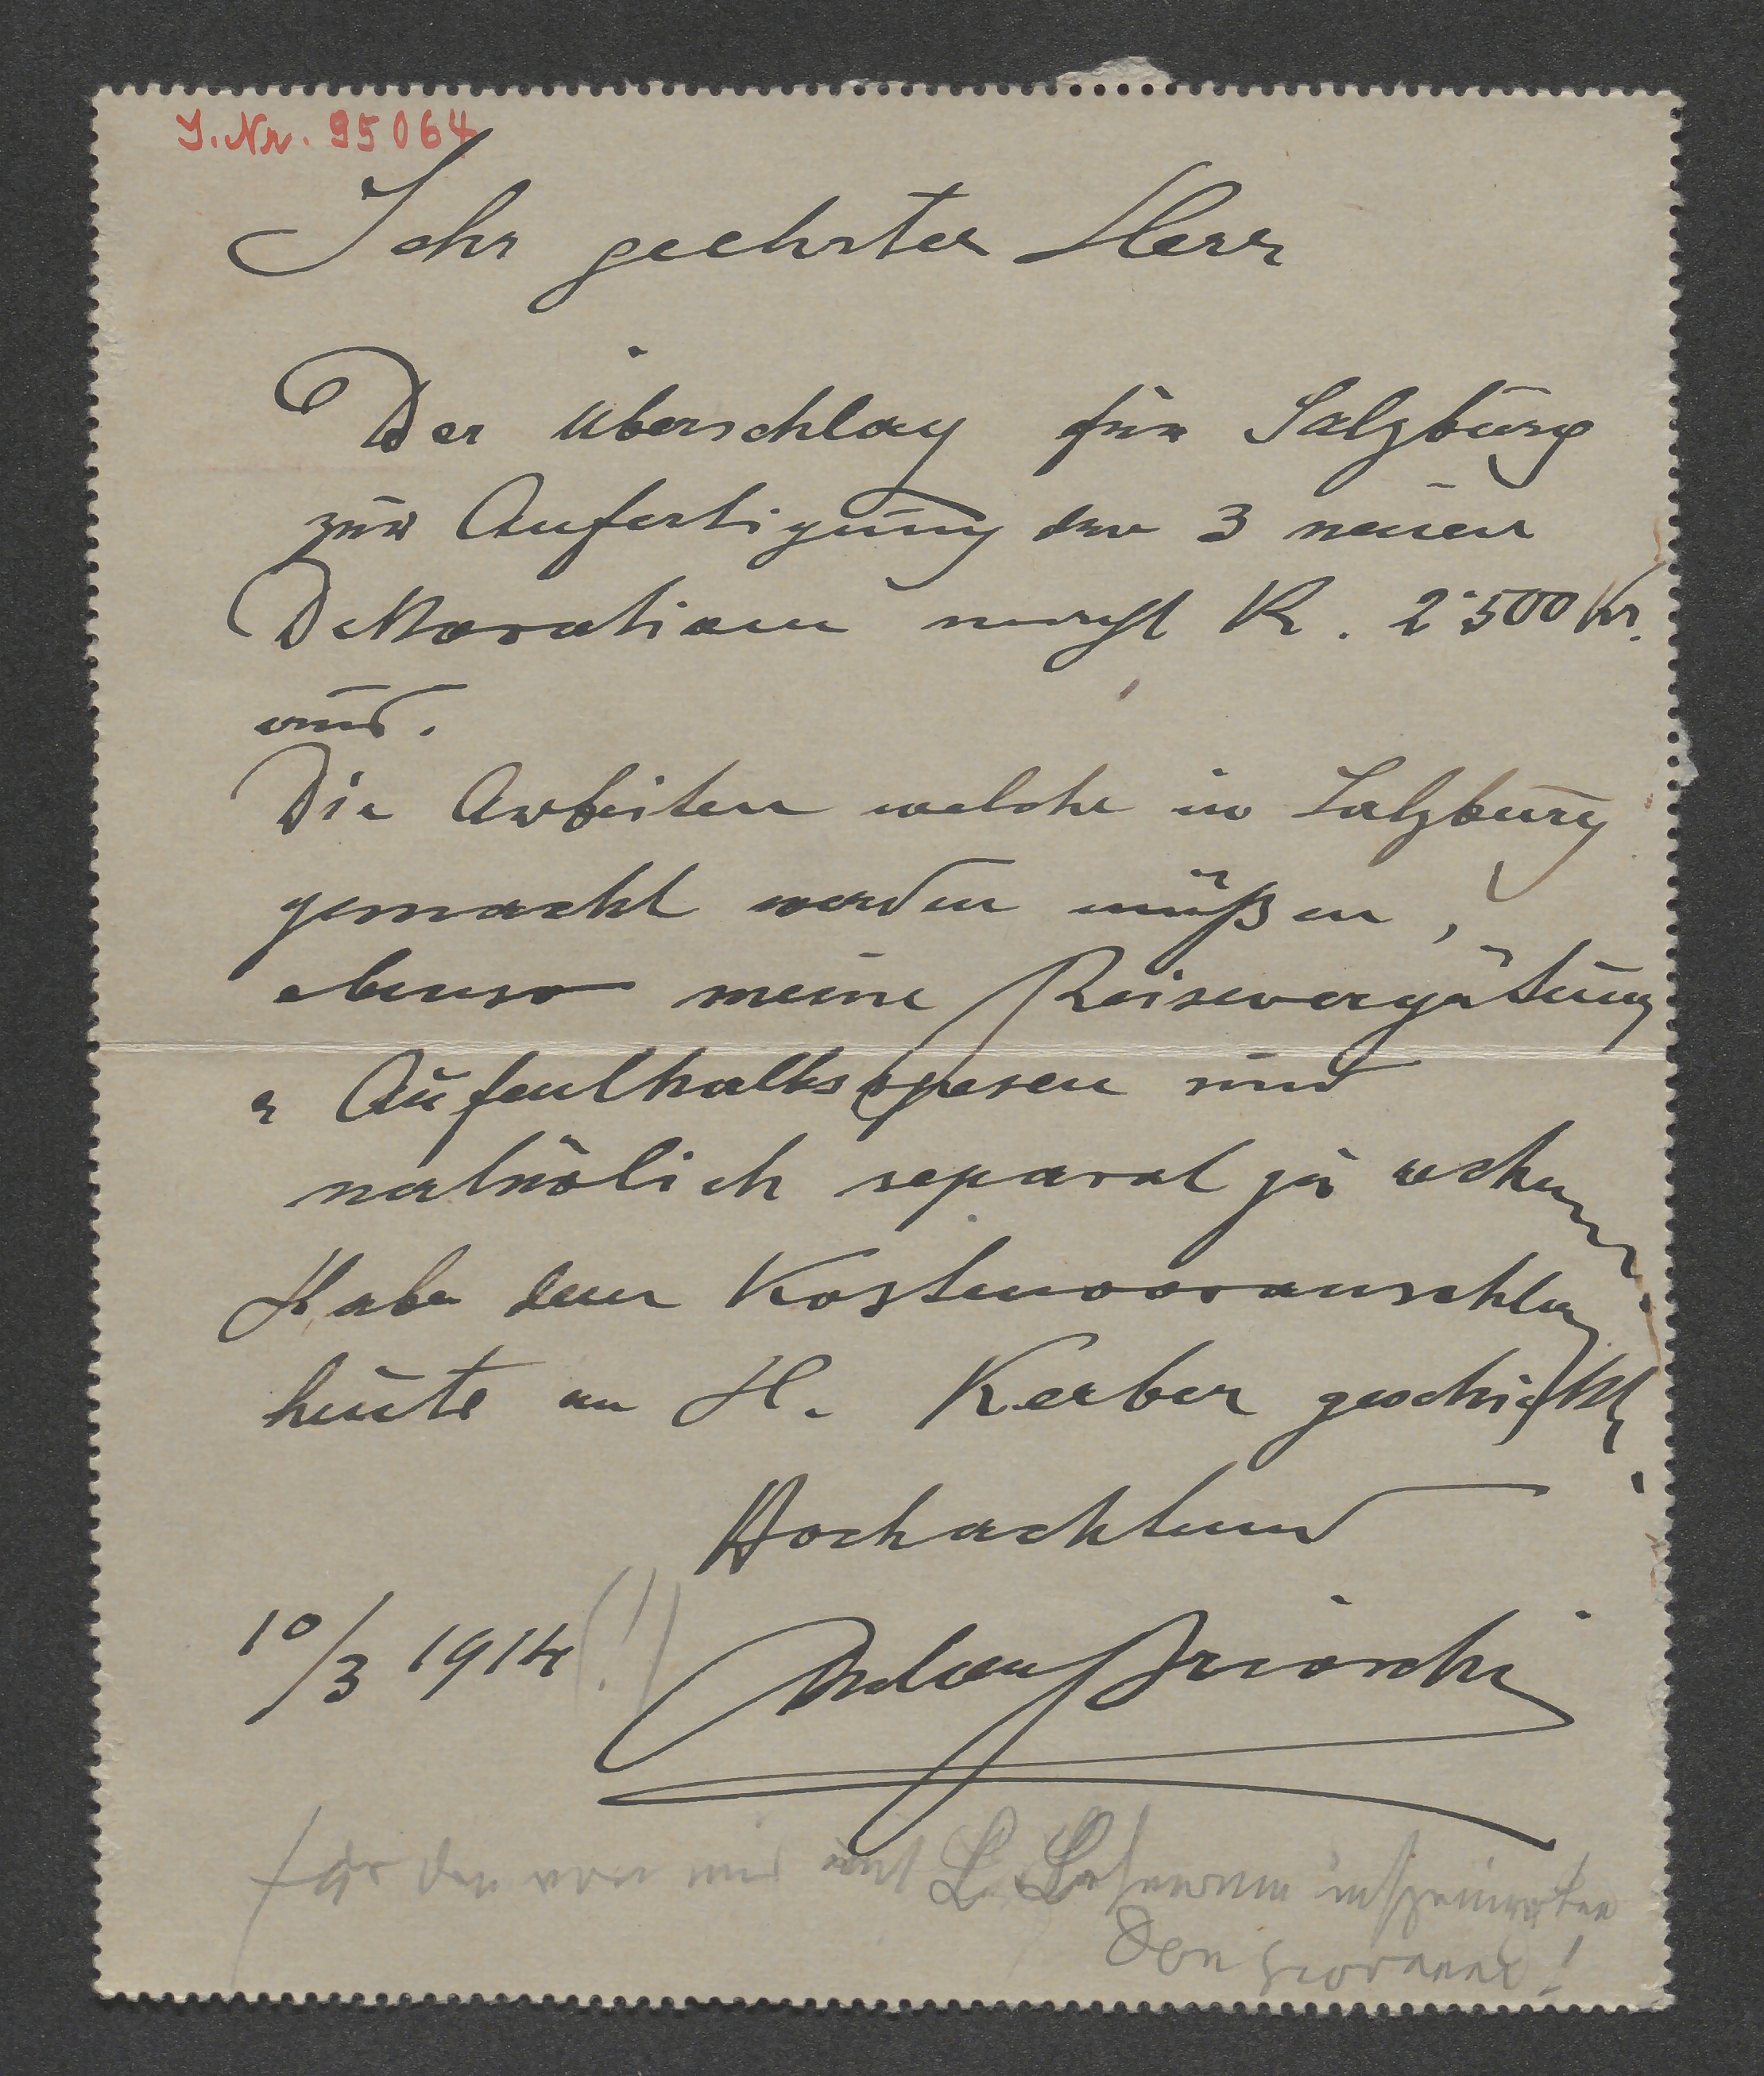 J. Nr. 95064
Sehr geehrter Herr
Der Überschlag für Salzburg
zur Anfertigung der 3 neuen
Dekorationen macht K. 2·500 Kr.
aus.
Die Arbeiten welche in Salzburg
gemacht werden müßen,
ebenso meine Reisevergütung
u Aufenthaltsspesen sind
natürlich separat zu rechnen.
Habe den Kostenvoranschlag
heute an H. Kerber geschickt.
Hochachtend
10/3 1914 (!) Anton Brioschi
für den von mir mit L. Lehmann inszenirten
Don Giovanni!